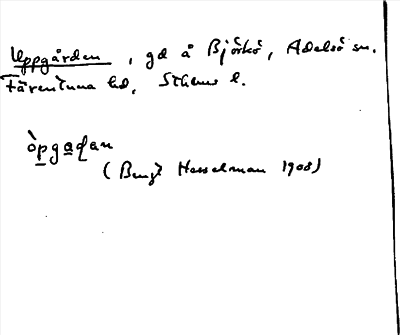 Uppgården, gd å Björkö, Adelsö sn.
Färentuna hd, Sthlms l.
òpgaɖan
(Bengt Hesselman 1908)